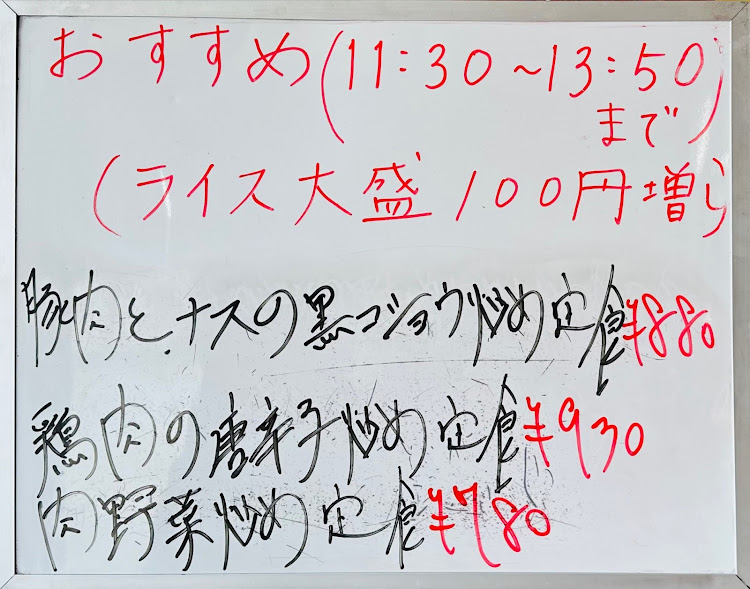 おすすめ(11:30～13:50
まで)
(ライス大盛100円増し)
豚肉とナスの黒コショウ炒め定食¥880
鶏肉の唐辛子炒め定食¥930
肉野菜炒め定食¥780